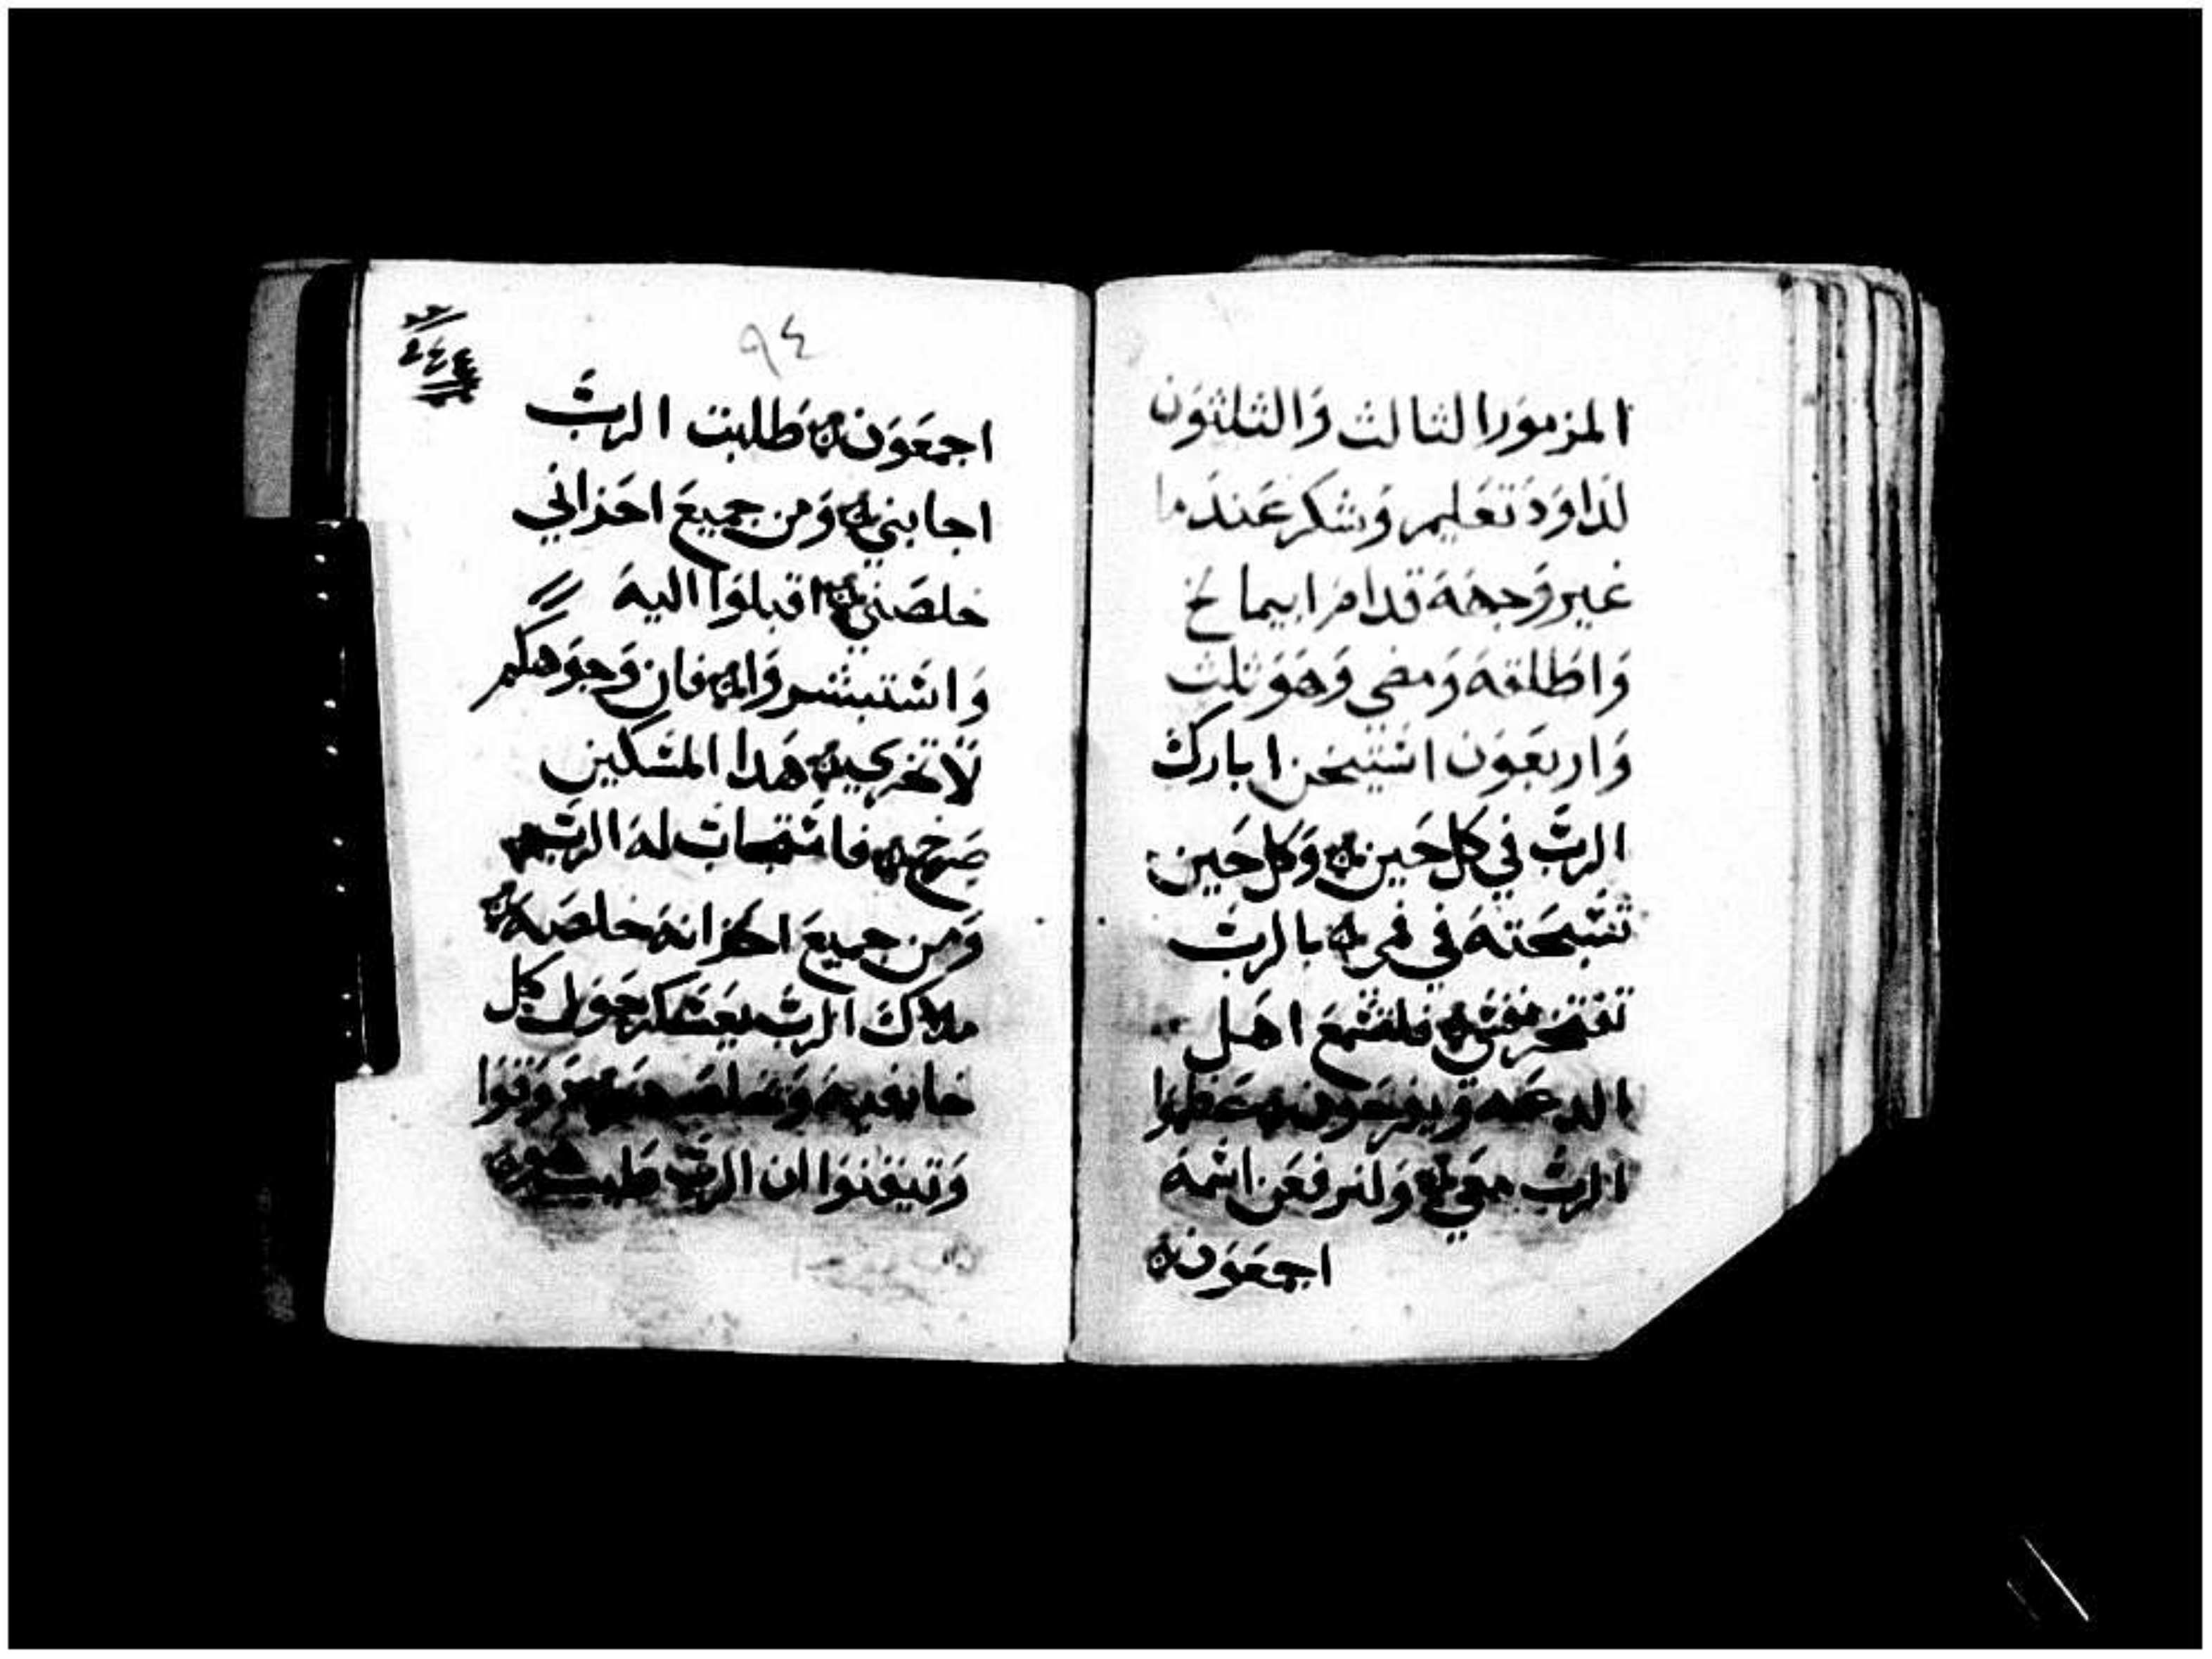 المزمور الثالث والثلثون
لداود تعليم وشكر عندما
غير وجهه قدام ابيمالخ
واطلقه ومضى وهو ثلث
واربعون استيخن ابارك
الرب في كل حين وكل حين
تسبحته في فمي بالرب
تفتخر نفسي فلتسمع اهل
الدعه ويفرحون عظموا
الرب معي ولنرفعن اسمه
اجمعون
٩٤
اجمعون طلبت الرب
اجابني ومن جميع احزاني
خلصني اقبلوا اليه
واستبشروا فان وجوهكم
لا تخزى هدا المسكين
صرخ فاستجاب له الرب
ومن جميع احزانه خلصه
ملاك الرب يعسكر حول كل
خايفيه دوقوا
وتيقنوا ان الرب طيب هو